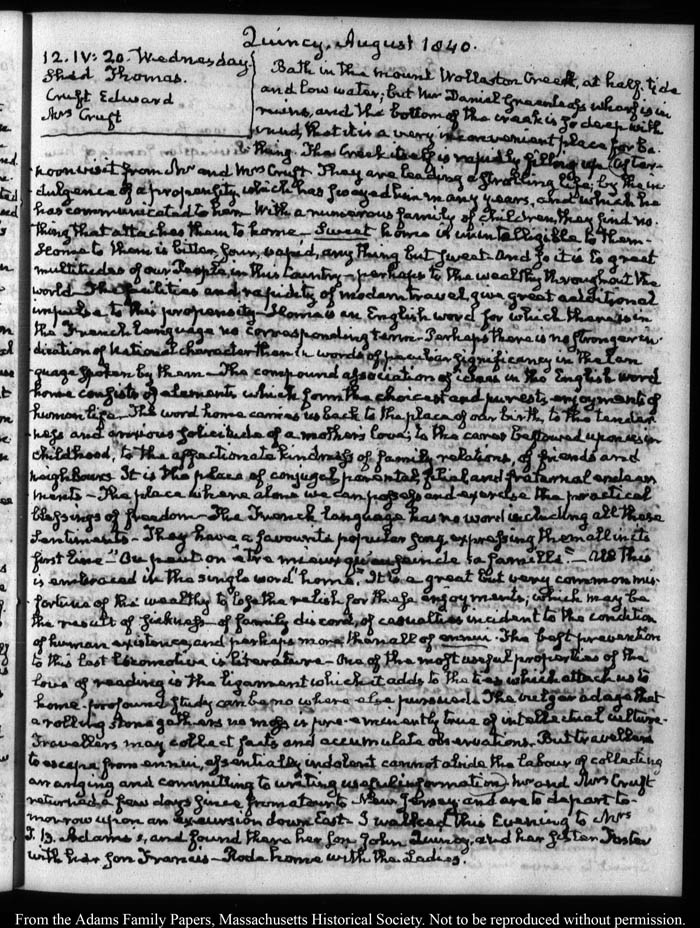 Quincy, August 1840.
12. IV: 20. Wednesday
Shed Thomas.
Cruft Edward
Mrs Cruft
Bath in the mount Wollaston Creek, at half tide
and low water; but Mr Daniel Greenleafs wharf is in
ruins, and the bottom of the creek is so deep with
mud, that it is a very inconvenient place for ba-
thing. The Creek itself is rapidly filling up. After-
noon visit from Mr and Mrs Cruft. They are leading a strolling life, by the in-
dulgence of a propensity which has swayed him many years, and which he
has communicated to her. With a numerous family of Children, they find no-
thing that attaches them to home—Sweet home is unintelligible to them—
Home to them is bitter, sour, vapid, any thing but sweet—And so it is to great
multitudes of our People, in this Country—perhaps to the wealthy throughout the
world—The facilities and rapidity of modern travel, give great additional
impulse to this propensity—Home is an English word for which there is in
the French language no corresponding term—Perhaps there is no stronger in-
dication of National character than in words of peculiar significancy in the lan-
guage spoken by them—The compound association of ideas in the English word
home consists of elements which form the choicest and purest enjoyments of
human life—The word home carries us back to the place of our birth, to the tender-
ness and anxious solicitude of a mothers love; to the cares bestowed upon us in
childhood, to the affectionate kindness of family relations, of friends and
neighbours. It is the place of conjugal, parental, filial and fraternal endear-
ments—The place where alone we can possess and exercise the practical
blessings of freedom—The French language has no word including all these
Sentiments—They have a favourite popular song, expressing them all in its
first line—"Ou peut on etre mieux qu'au sein de sa famille"—All this
is embraced in the single word home. It is a great but very common mis-
fortune of the wealthy to lose the relish for these enjoyments, which may be
the result of sickness—of family discord, of casualties incident to the condition
of human existence, and perhaps more than all of ennui. The best prevention
to this last locomotive is literature—One of the most useful properties of the
love of reading is the ligament which it adds to the ties which attach us to
home—profound study can be no where else pursued. The vulgar adage that
a rolling stone gathers no moss is pre-eminently true of intellectual culture.
Travellers may collect facts and accumulate observations. But travellers
to escape from ennui, essentially indolent cannot abide the labour of collecting
arranging and committing to writing useful information. Mr and Mrs Cruft
returned a few days since from a tour to New Jersey and are to depart to-
morrow upon an excursion down East—I walked this Evening to Mrs
T. B. Adams's, and found there her son John Quincy, and her sister Foster
with her son Francis—Rode home with the Ladies.
From the Adams Family Papers, Massachusetts Historical Society. Not to be reproduced without permission.